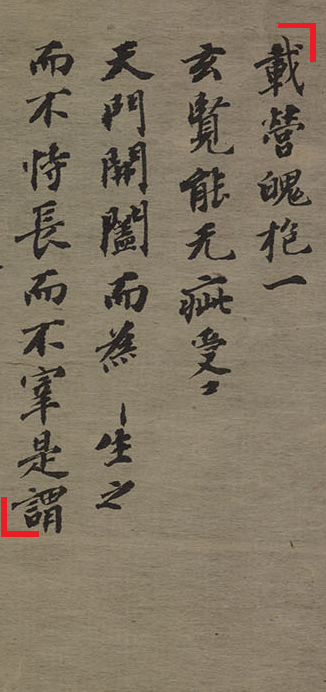 載營魄抱一
玄覽能无疵受
天門開闔而為 生之
而不恃長而不宰是謂